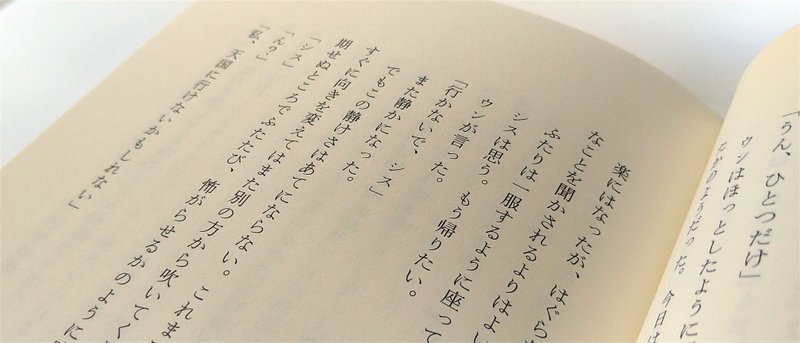 「うん、ひとつだけ」
ウンはほっとしたように
だかのようだった。今日は
楽にはなったが、はぐら
なことを聞かされるよりはよい
ふたりは一服するように座って
シスは思う。もう帰りたい。
ウンが言った。
「行かないで、シス」
また静かになった。
でもこの静けさはあてにならない。これま
すぐに向きを変えてはまた別の方から吹いてく
期せぬところでふたたび、怖がらせるかのように
「シス」
「ん?」
「私、天国に行けないかもしれない」